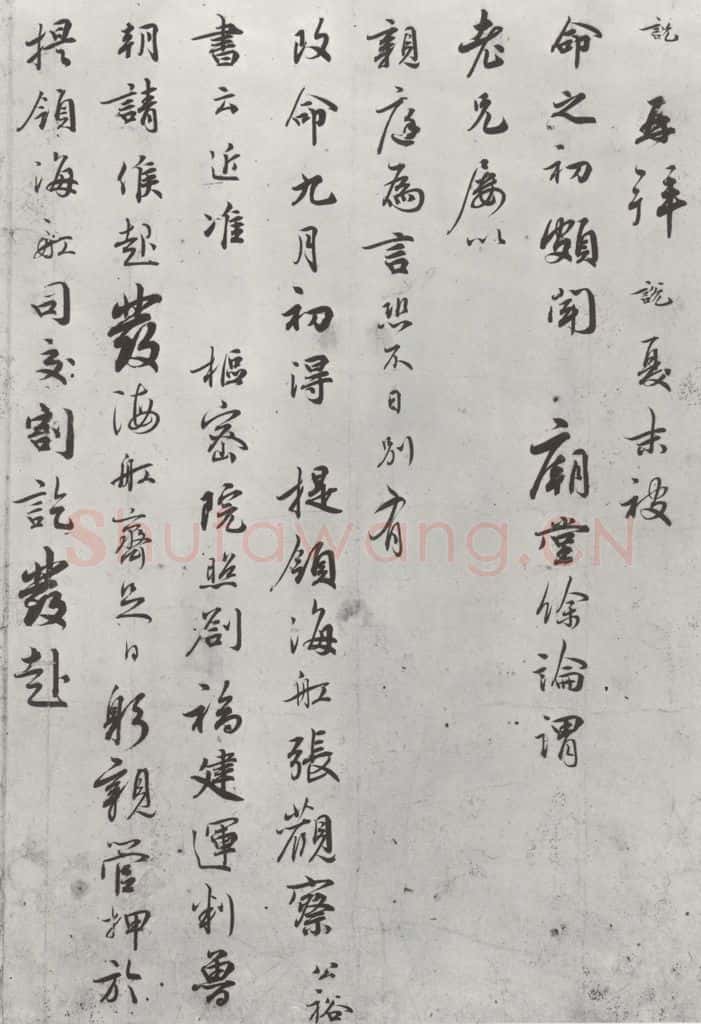 説 再拜 説 夏末被
命之初頗聞 廟堂餘論謂
老兄屡以
親庭為言恐不日別有
改命九月初得 提領海舡張觀察公裕
書云近准 樞密院照劄福建運判魯
朝請候起發海舡齊足日躬親管押於
提領海舡司交割訖發赴
Shufawang.CN